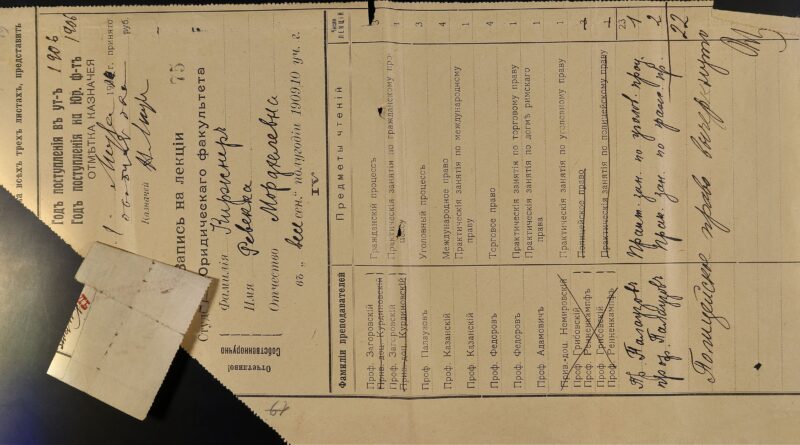 на всѣхъ трехъ листахъ, представить
Годъ поступленія въ ун-тъ 1906
Годъ поступленія на Юр. ф-тъ 1906
ОТМѢТКА КАЗНАЧЕЯ
г. принято
руб.
Казначей
Запись на лекціи 75
Юридическаго факультета
Фамилія Киржнеръ
Имя Ревекка
Отчество Мордхелевна
въ „ полугодіи 190910 уч. г.
IV
Отчетливо!
Собственноручно
Фамиліи преподавателей Предметы чтеній Число лекцій
Проф. Загоровскій Гражданскій процессъ 3
Прив.-доц. Курдиновскій
Проф. Загоровскій Практическія занятія по гражданскому пра- 1
Прив.-доц. Курдиновскій
Проф. Палаузовъ Уголовный процессъ 3
Проф. Казанскій Международное право 4
Проф. Казанскій Практическія занятія по международному праву 1
Проф. Федоровъ Торговое право 4
Проф. Федоровъ Практическія занятія по торговому праву 1
Проф. Адамовичъ Практическія занятія по догмѣ римскаго права 1
Прив.-доц. Немировскій Практическія занятія по уголовному праву 1
Проф. Полицейское право
Проф. Ренненкампфъ
Проф. Практическія занятія по полицейскому праву
Проф. Ренненкампфъ
23
Пр. Палаузовъ Практ. зан. по уголов. проц. 1
проф. Палаузовъ Прак. зан. по 2
22
Полицейское право вычеркнуто
67